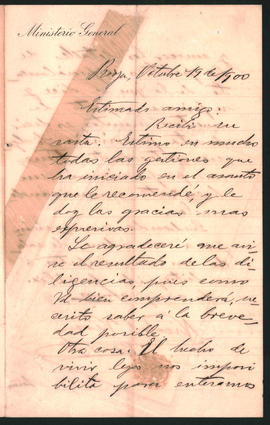 Ministerio General
Rioja, Octubre 19 de 1900
Estimado amigo:
Recibí su
carta. Estimo en mucho
todas las gestiones que
ha iniciado en el asunto
que le recomendé, y le
doy las gracias mas
expresivas.
Le agradeceré que avi-
se el resultado de las di-
ligencias, pues como
Vd bien comprenderá, ne-
cesito saber á la breve-
dad posible.
Otra cosa: El hecho de
vivir lejos nos imposi-
bilita para enterarnos